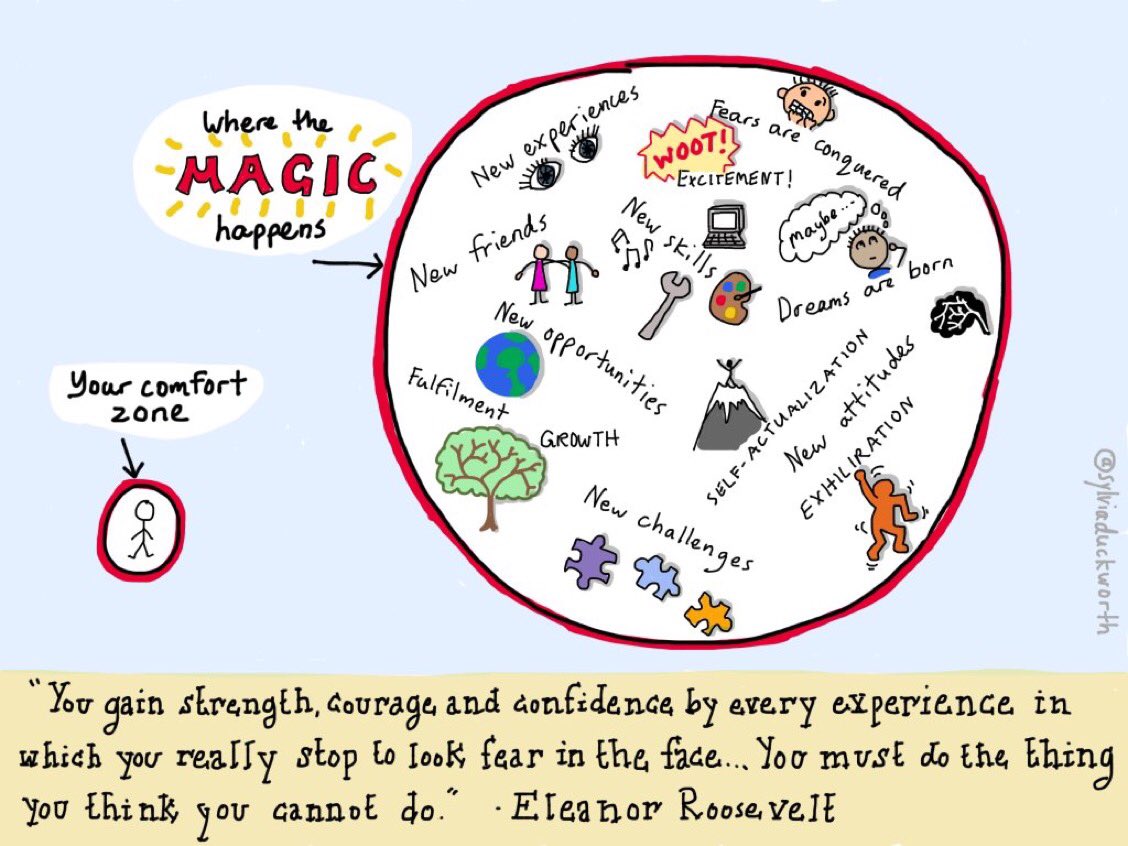 Where the
MAGIC
happens
Your comfort
zone
New experiences
WOOT!
EXCITEMENT!
Fears are conquered
New friends
New skills
maybe....
Dreams are born
New opportunities
Fulfilment
GROWTH
SELF-ACTUALIZATION
New attitudes
EXHILIRATION
New challenges
@sylviaduckworth
"You gain strength, courage and confidence by every experience in
which you really stop to look fear in the face... You must do the thing
you think you cannot do." - Eleanor Roosevelt